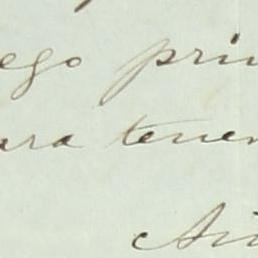 ego prin
ara tener